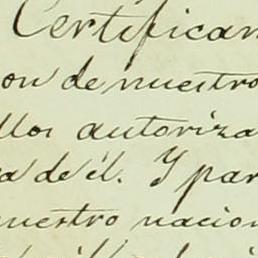 Certifican
on de nuestro
llos autoriza
a de él. Y par
nuestro nacion